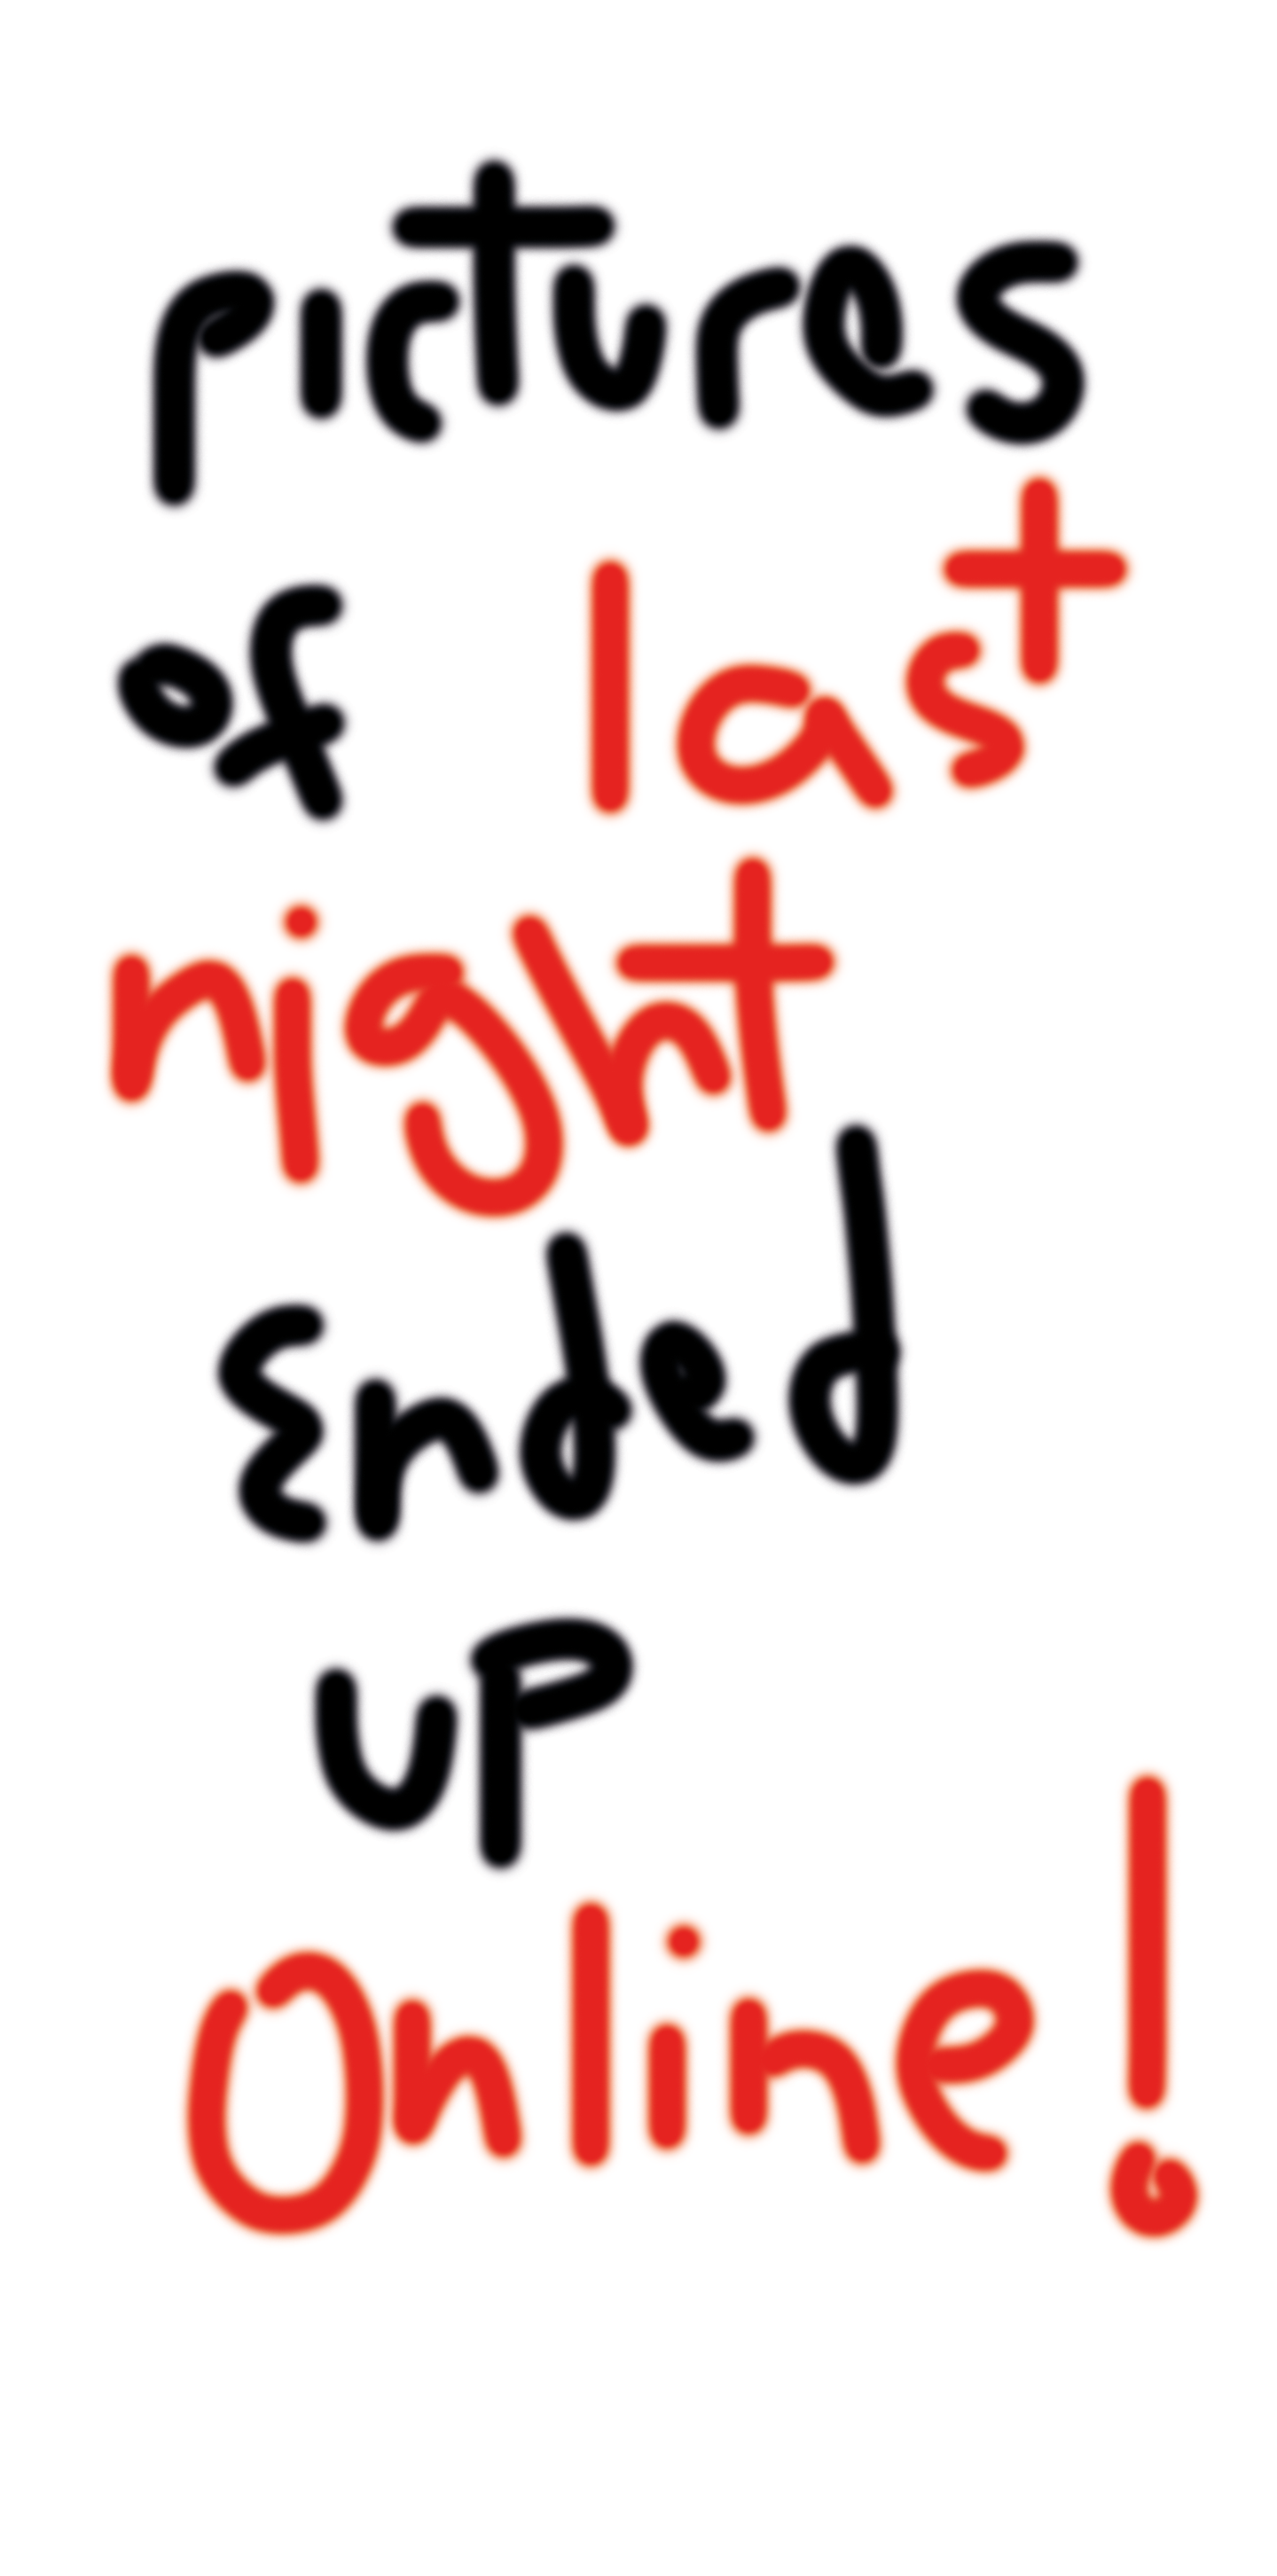 pictures
of last
night
Ended
up
Online!